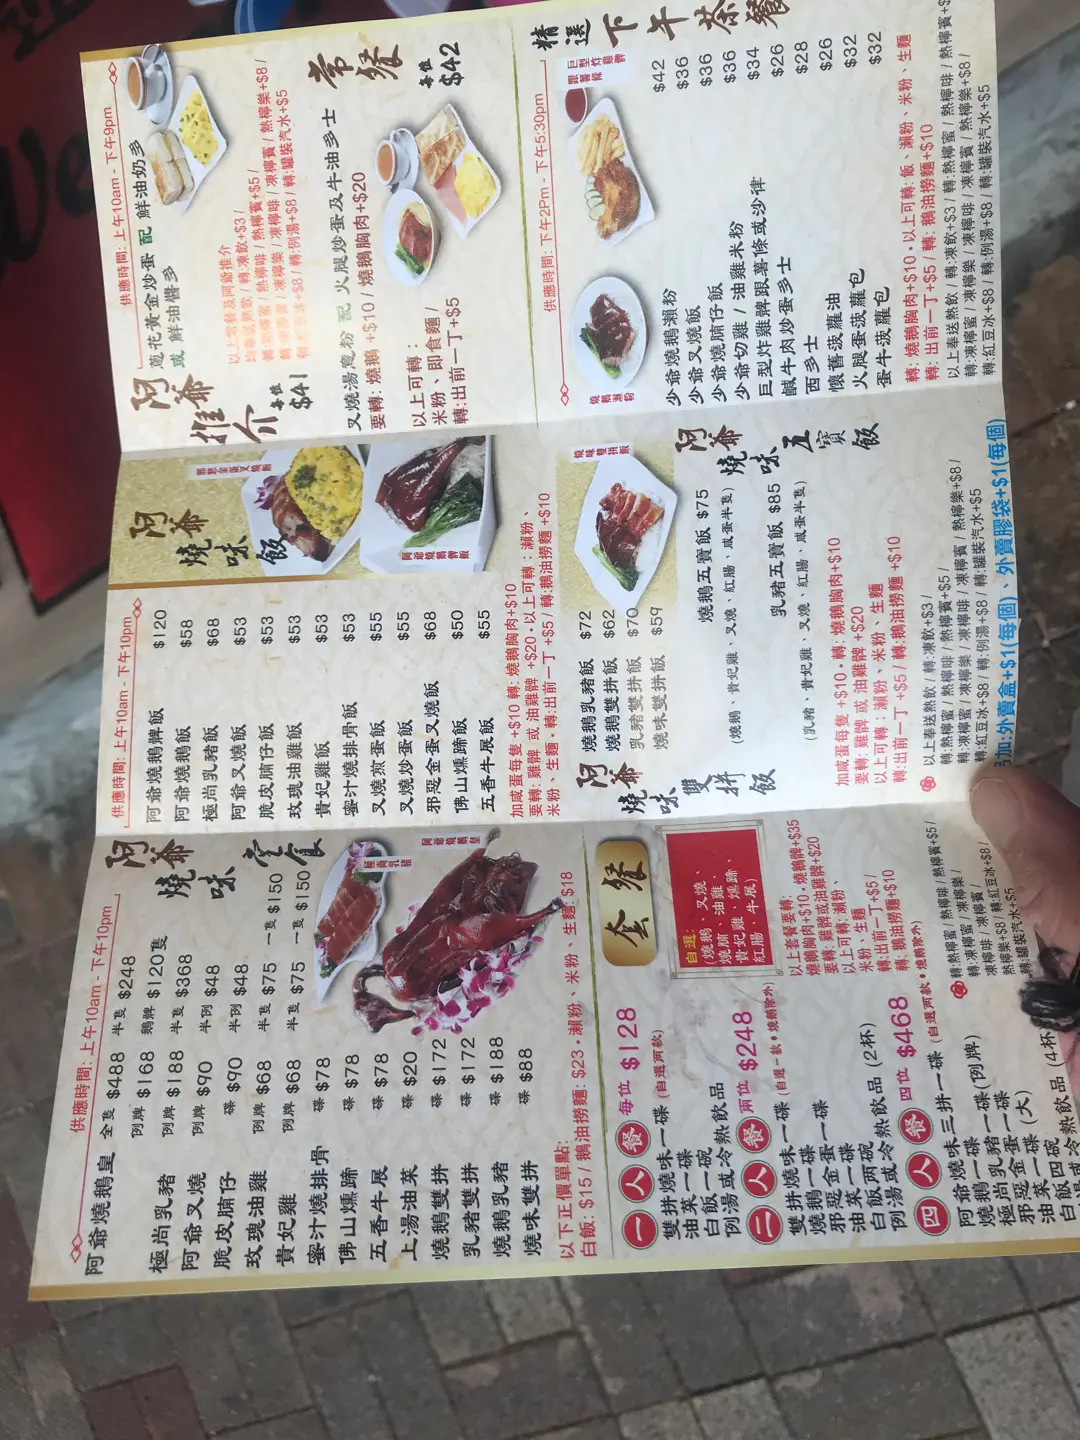 阿爺燒味堂食
供應時間: 上午10am - 下午10pm
阿爺燒鵝皇 全隻 $488 半隻 $248
例牌 $168 鵝髀 $120隻
極尚乳豬 例牌 $188 半隻 $368
阿爺叉燒 例牌 $90 半例 $48
脆皮腩仔 碟 $90 半例 $48
玫瑰油雞 例牌 $68 半隻 $75 一隻 $150
貴妃雞 例牌 $68 半隻 $75 一隻 $150
蜜汁燒排骨 碟 $78
佛山燻蹄 碟 $78
五香牛展 碟 $78
上湯油菜 碟 $20
燒鵝雙拼 碟 $172
乳豬雙拼 碟 $172
燒鵝乳豬 碟 $188
燒味雙拼 碟 $88
極尚乳豬
阿爺燒鵝皇
以下正價單點:
白飯: $15 / 鵝油撈麵: $23・瀨粉、米粉、生麵: $18
套餐
一人餐 每位 $128
雙拼燒味一碟 (自選兩款)
油菜一碟
白飯一碗
例湯或冷熱飲品
二人餐 兩位 $248
雙拼燒味一碟 (自選一款・燒鵝除外)
燒鵝一碟
邪惡金蛋一碟
油菜一碟
白飯兩碗
例湯或冷熱飲品 (2杯)
四人餐 四位 $468
阿爺燒味三拼一碟 (自選兩款・燒鵝除外)
燒鵝一碟(例牌)
極尚乳豬一碟
邪惡金蛋一碟
油菜一碟 (大)
白飯四碗
冷熱飲品 (4杯
自選:
(燒鵝、叉燒、
燒腩、油雞、
貴妃雞、燻蹄、
紅腸、牛展)
以上套餐要轉:
燒鵝胸肉+$10・燒鵝髀+$35
要轉: 雞髀或油雞髀+$20
以上可轉: 瀨粉、
米粉、生麵
轉:出前一丁+$5/
轉: 鵝油撈麵+$10
轉:熱檸蜜/熱檸啡/熱檸賓+$5/
轉:凍檸蜜/凍檸樂/
凍檸啡/凍檸賓/
熱檸樂+$8/轉:紅豆冰+$8/
轉:罐裝汽水+$5
阿爺燒味飯
邪惡金蛋叉燒飯
阿爺燒鵝髀飯
供應時間: 上午10am - 下午10pm
阿爺燒鵝髀飯 $120
阿爺燒鵝飯 $58
極尚乳豬飯 $68
阿爺叉燒飯 $53
脆皮腩仔飯 $53
玫瑰油雞飯 $53
貴妃雞飯 $53
蜜汁燒排骨飯 $53
叉燒煎蛋飯 $55
叉燒炒蛋飯 $55
邪惡金蛋叉燒飯 $68
佛山燻蹄飯 $50
五香牛展飯 $55
加咸蛋每隻 +$10 轉: 燒鵝胸肉+$10
要轉: 雞髀 或 油雞髀 +$20・以上可轉: 瀨粉、
米粉、生麵・轉:出前一丁 +$5/ 轉:鵝油撈麵 +$10
阿爺燒味雙拼飯
燒味雙拼飯
燒鵝乳豬飯 $72
燒鵝雙拼飯 $62
乳豬雙拼飯 $70
燒味雙拼飯 $59
阿爺燒味五寶飯
燒鵝五寶飯 $75
(燒鵝、貴妃雞、叉燒、紅腸、咸蛋半隻)
乳豬五寶飯 $85
(乳豬、貴妃雞、叉燒、紅腸、咸蛋半隻)
加咸蛋每隻 +$10・轉: 燒鵝胸肉+$10
要轉: 雞髀 或 油雞髀 +$20
以上可轉: 瀨粉、米粉、生麵
轉:出前一丁 +$5 / 轉:鵝油撈麵 +$10
以上奉送熱飲 / 轉:凍飲+$3/
轉:熱檸蜜 / 熱檸啡 / 熱檸賓+$5 /
轉:凍檸蜜/ 凍檸樂 / 凍檸啡 / 凍檸賓 / 熱檸樂+$8/
轉:紅豆冰+$8 / 轉:例湯+$8 / 轉:罐裝汽水+$5
另加:外賣盒+$1(每個)、外賣膠袋+$1(每個)
阿爺推介 每位 $41
供應時間: 上午10am - 下午9pm
蔥花黃金炒蛋 配 鮮油奶多
或 鮮油醬多
以上常餐及阿爺推介
均奉送熱飲 / 轉:凍飲+$3 /
轉:熱檸蜜 / 熱檸啡 / 熱檸賓+$5 /
轉:凍檸蜜 / 凍檸樂 / 凍檸啡 / 凍檸賓 / 熱檸樂+$8 /
轉:紅豆冰+$8 / 轉:例湯+$8 / 轉:罐裝汽水+$5
常餐 每位 $42
叉燒湯意粉 配 火腿炒蛋及牛油多士
要轉: 燒鵝 +$10 / 燒鵝胸肉+$20
以上可轉:
米粉、即食麵/
轉:出前一丁+$5
精選下午茶餐
供應時間: 下午2Pm - 下午5:30pm
巨型炸雞髀跟薯條
燒鵝瀨粉
少爺燒鵝瀨粉 $42
少爺叉燒飯 $36
少爺燒腩仔飯 $36
少爺切雞 / 油雞米粉 $36
巨型炸雞髀跟薯條或沙律 $34
鹹牛肉炒蛋多士 $26
西多士 $28
懷舊菠蘿油 $26
火腿蛋菠蘿包 $32
蛋牛菠蘿包 $32
轉: 燒鵝胸肉+$10・以上可轉: 飯、瀨粉、米粉、生麵
轉: 出前一丁+$5 / 轉: 鵝油撈麵+$10
以上奉送熱飲 / 轉:凍飲+$3 / 轉:熱檸蜜 / 熱檸啡 / 熱檸賓+$
轉:凍檸蜜 / 凍檸樂 / 凍檸啡 / 凍檸賓 / 熱檸樂+$8 /
轉:紅豆冰+$8 / 轉:例湯+$8 / 轉:罐裝汽水+$5